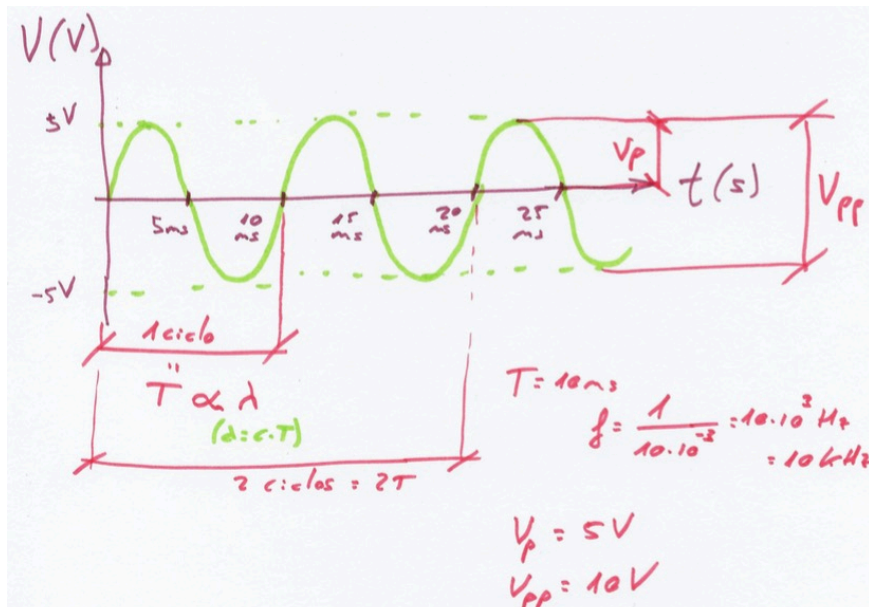 V(V)
5V
Vp
t(s)
Vpp
5ms
10 ms
15 ms
20 ms
25 ms
-5V
1 ciclo
"
T ∝ λ
(λ=c.T)
2 ciclos = 2T
T = 10ms
f = 1/10.10⁻³ = 10.10³ Hz
= 10kHz
Vp = 5V
Vpp = 10V